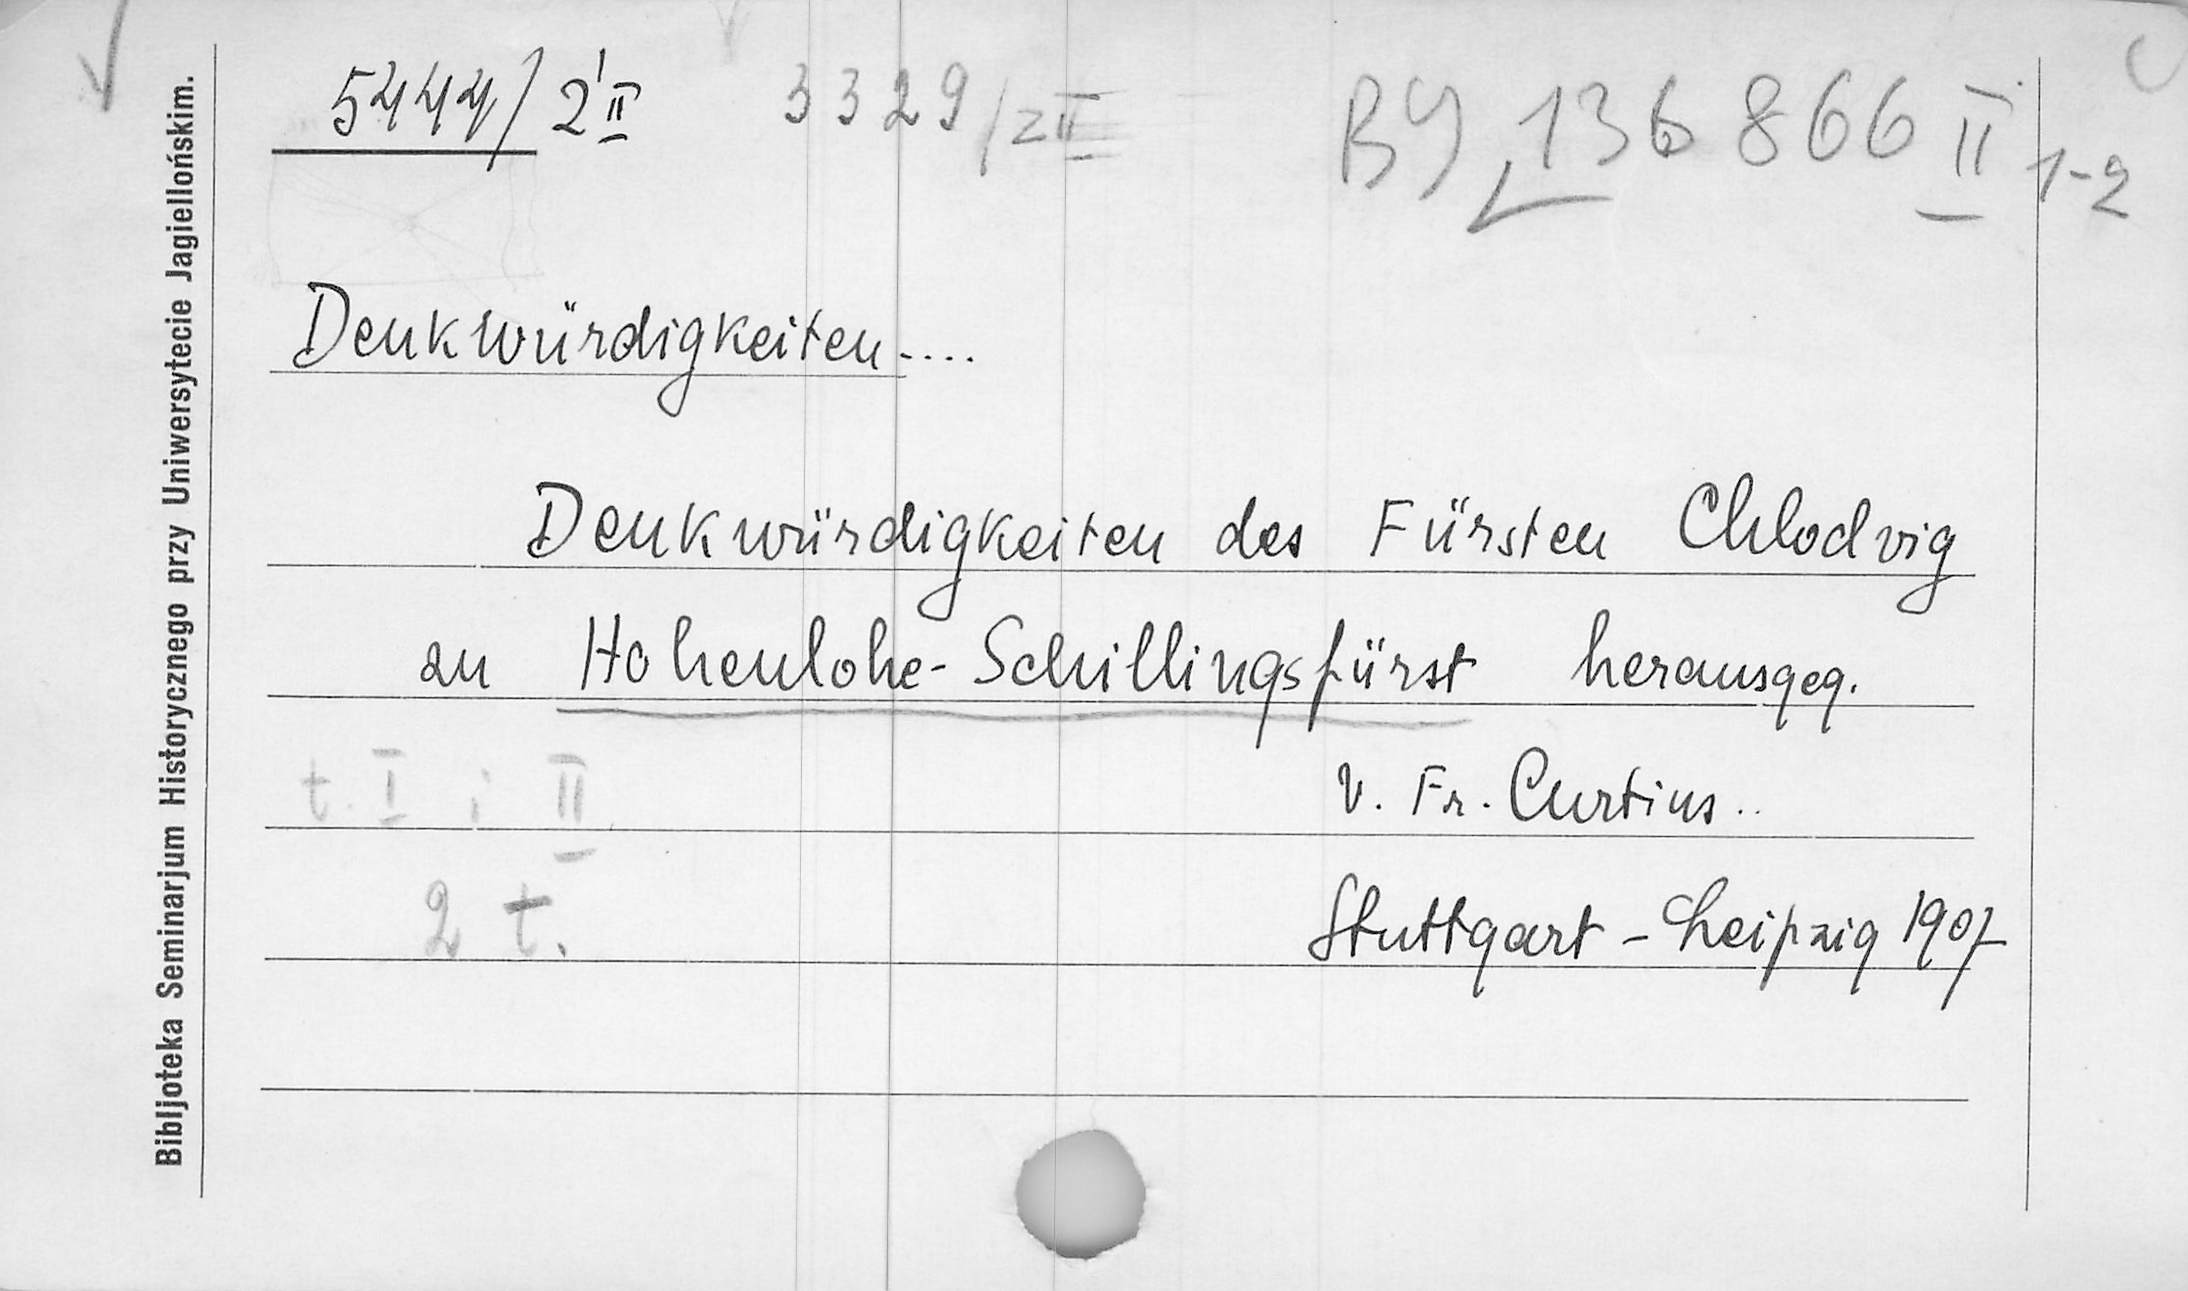 5444/2' II 3329/Z II BJ 136 866 II 1-2
Denkwürdigkeiten....
Denkwürdigkeiten des Fürsten Chlodvig
zu Hohenlohe-Schillingsfürst herausgeg.
t. I i II v. Fr. Curtius..
2 t. Stuttgart - Leipzig 1907
Bibljoteka Seminarjum Historycznego przy Uniwersytecie Jagiellońskim.